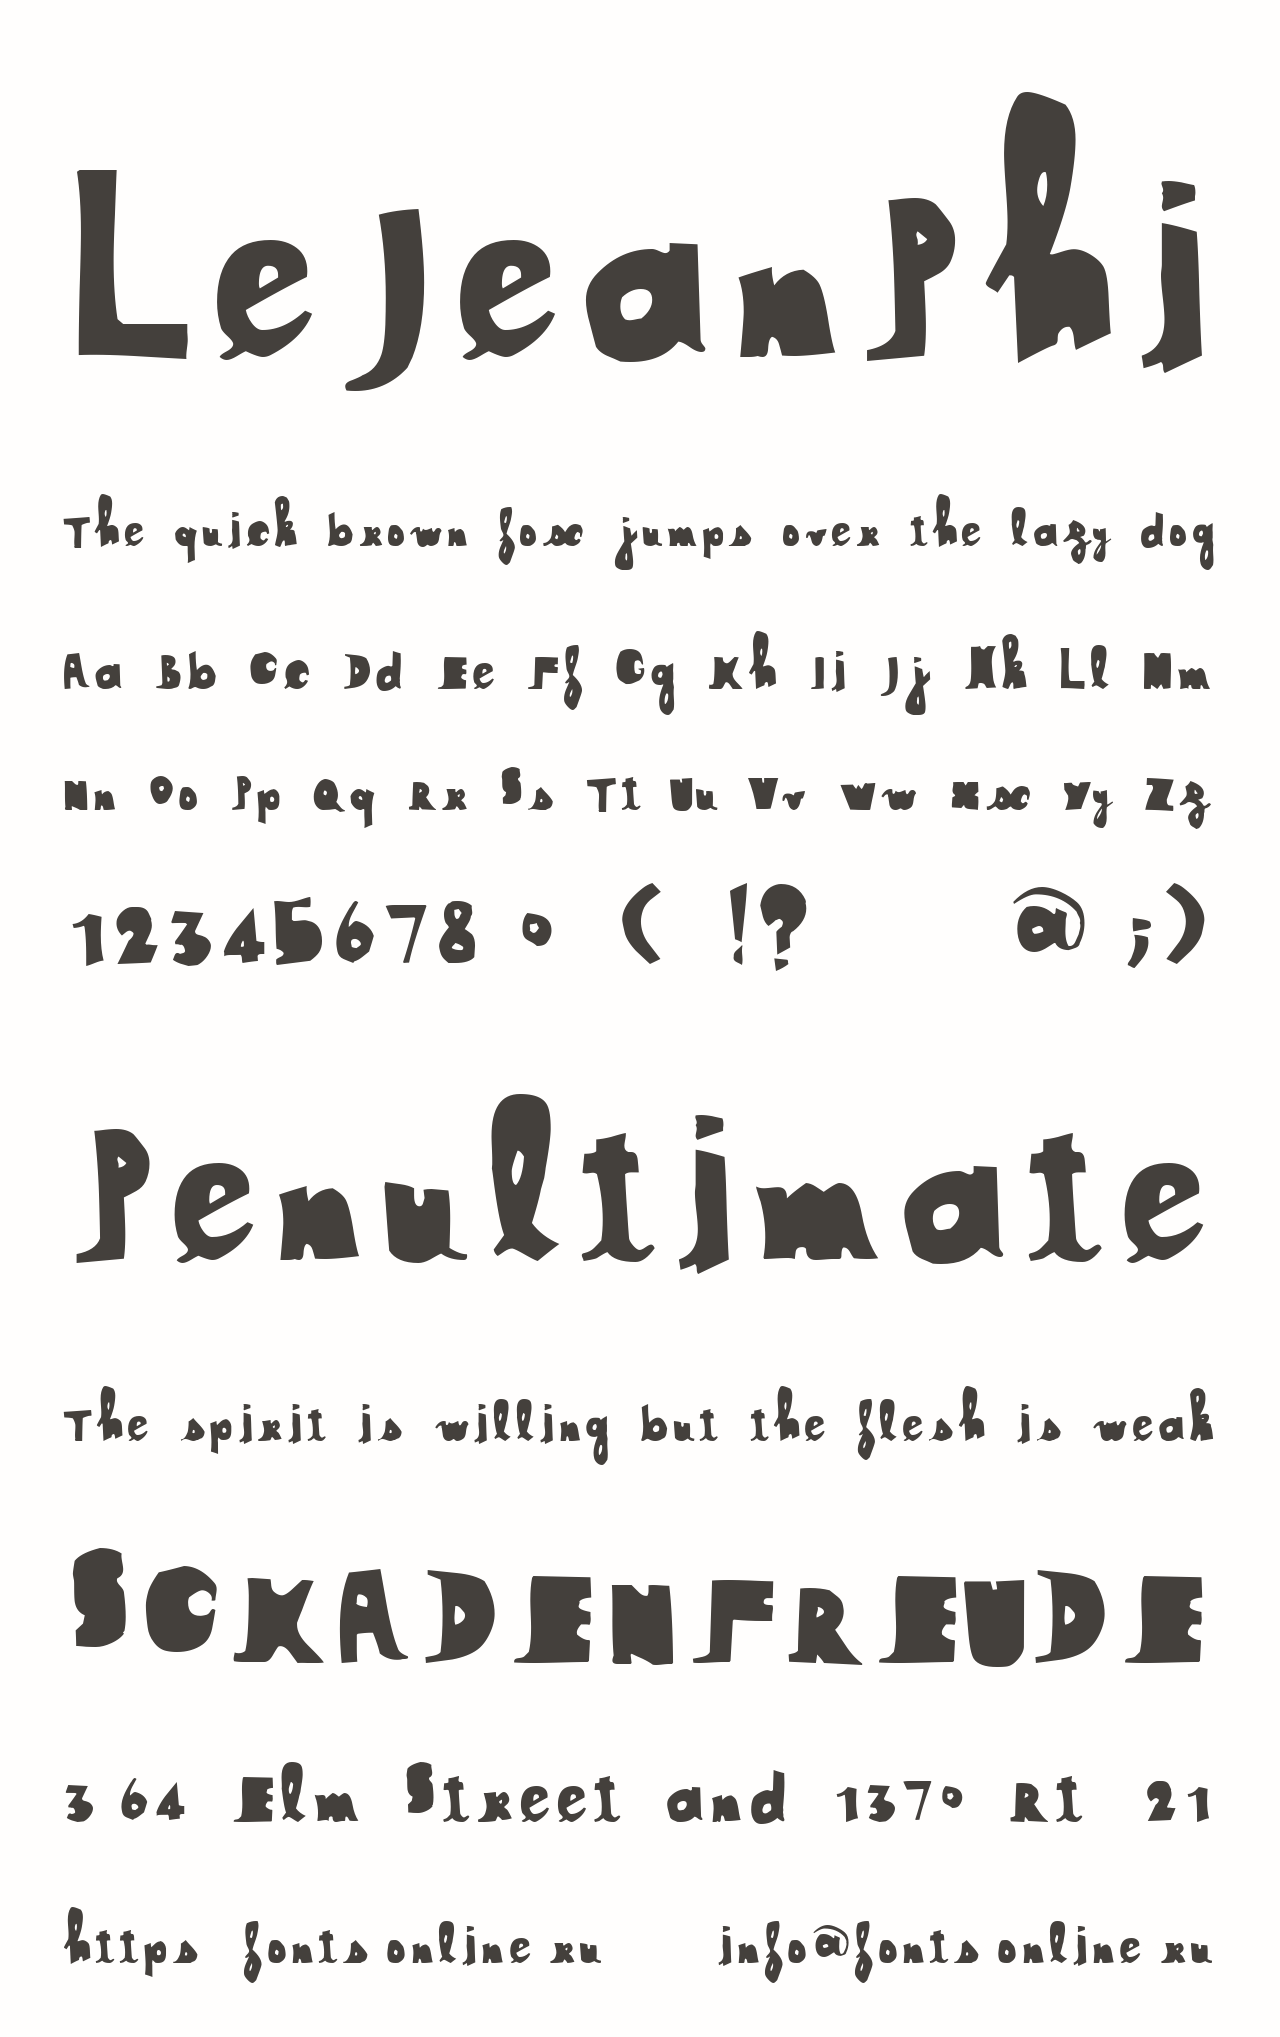 Le Jean Phi
The quick brown fox jumps over the lazy dog
Aa Bb Cc Dd Ee Ff Gg Hh Ii Jj Kk Ll Mm
Nn Oo Pp Qq Rr Ss Tt Uu Vv Ww Xx Yy Zz
12345678 0 ( !? @ ;)
Penultimate
The spirit is willing but the flesh is weak
SCHADENFREUDE
3 64 Elm Street and 1370 Rt 21
https fonts online ru info@fonts online ru